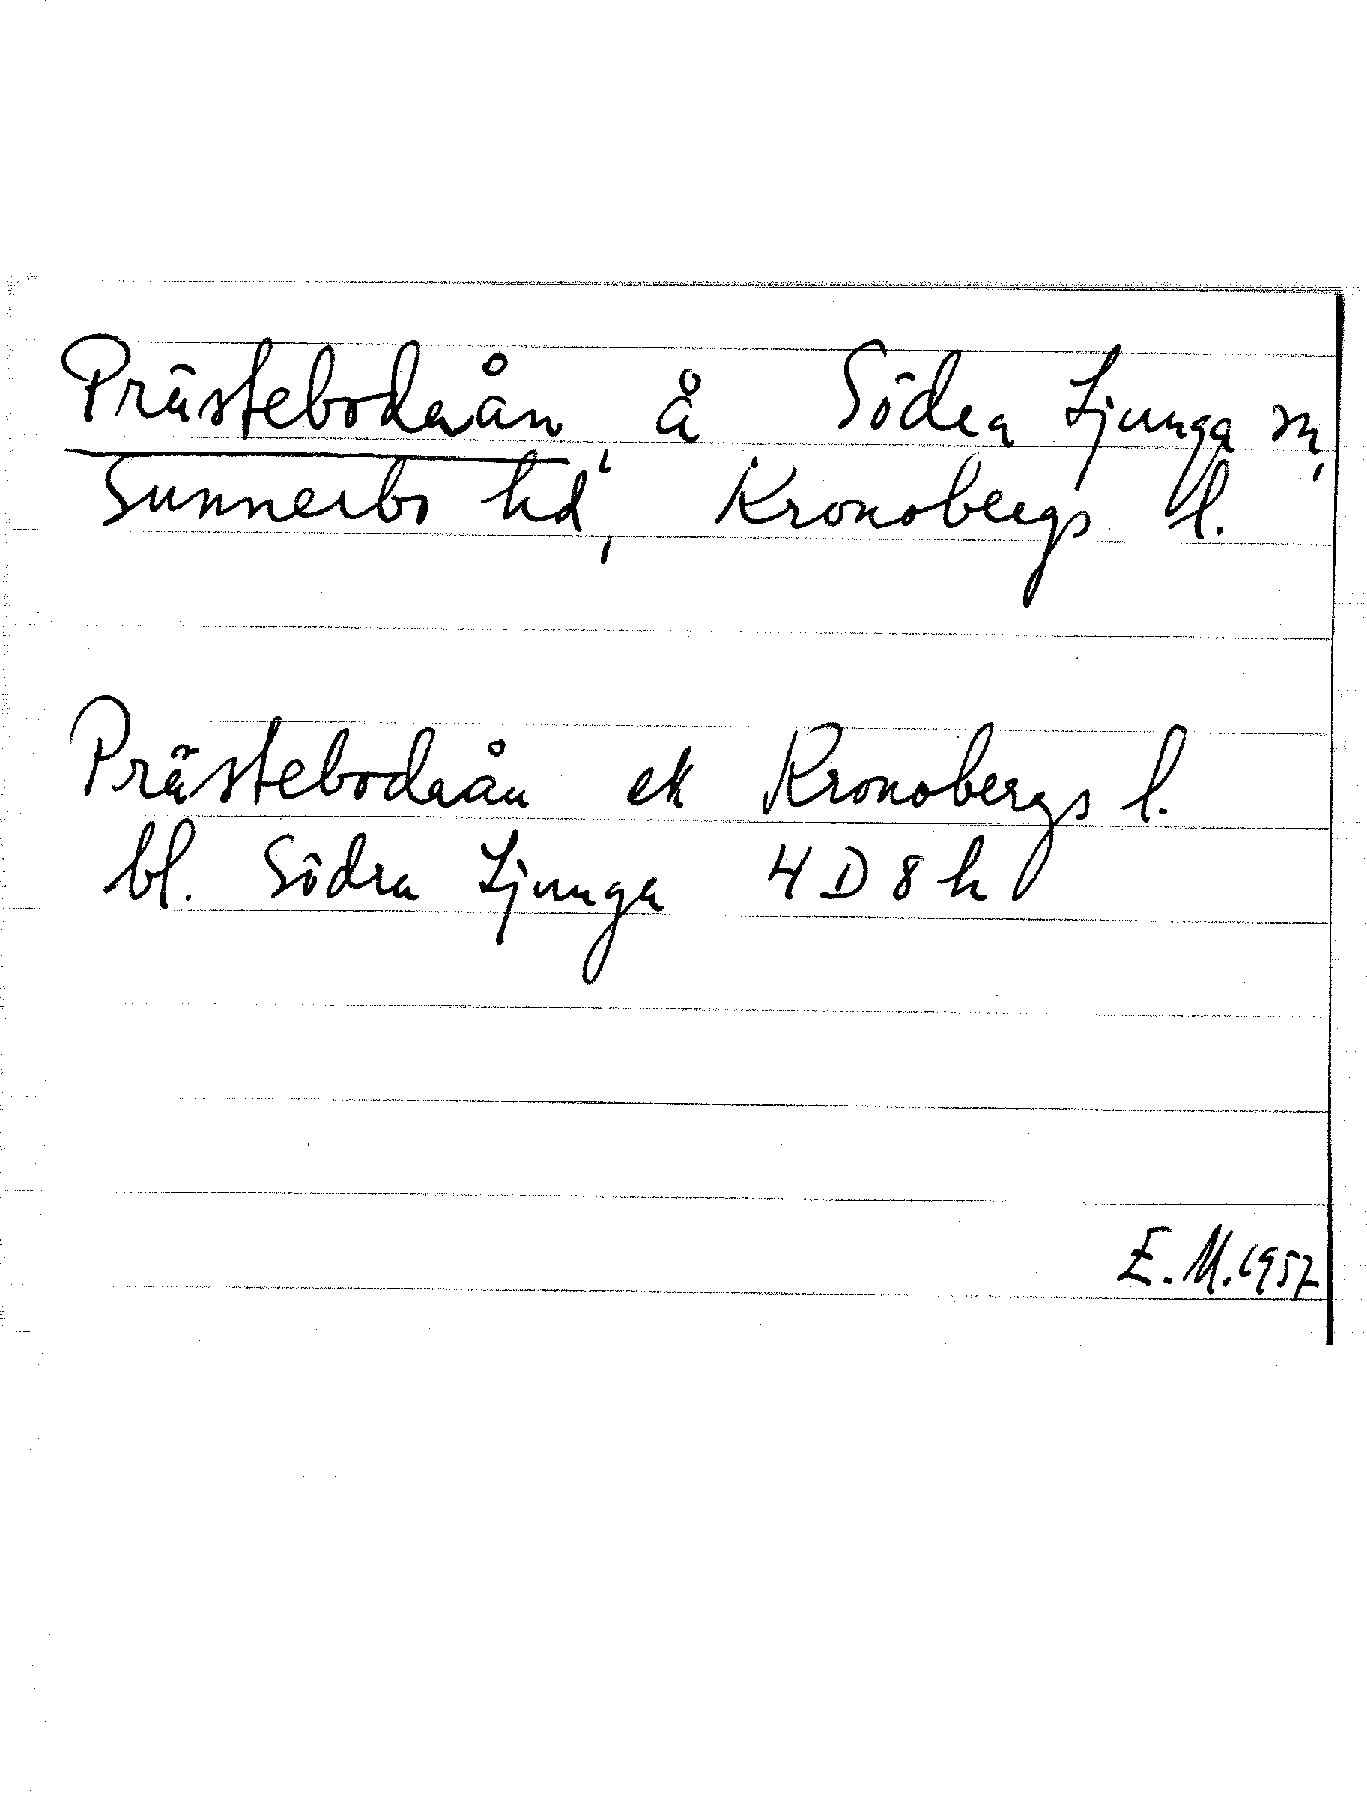 Prästebodaån, å Södra Ljunga sn,
Sunnerbo hd, Kronobergs l.
Prästebodaån ek Kronobergs l.
bl. Södra Ljunga 4D8h
E. M. 1957